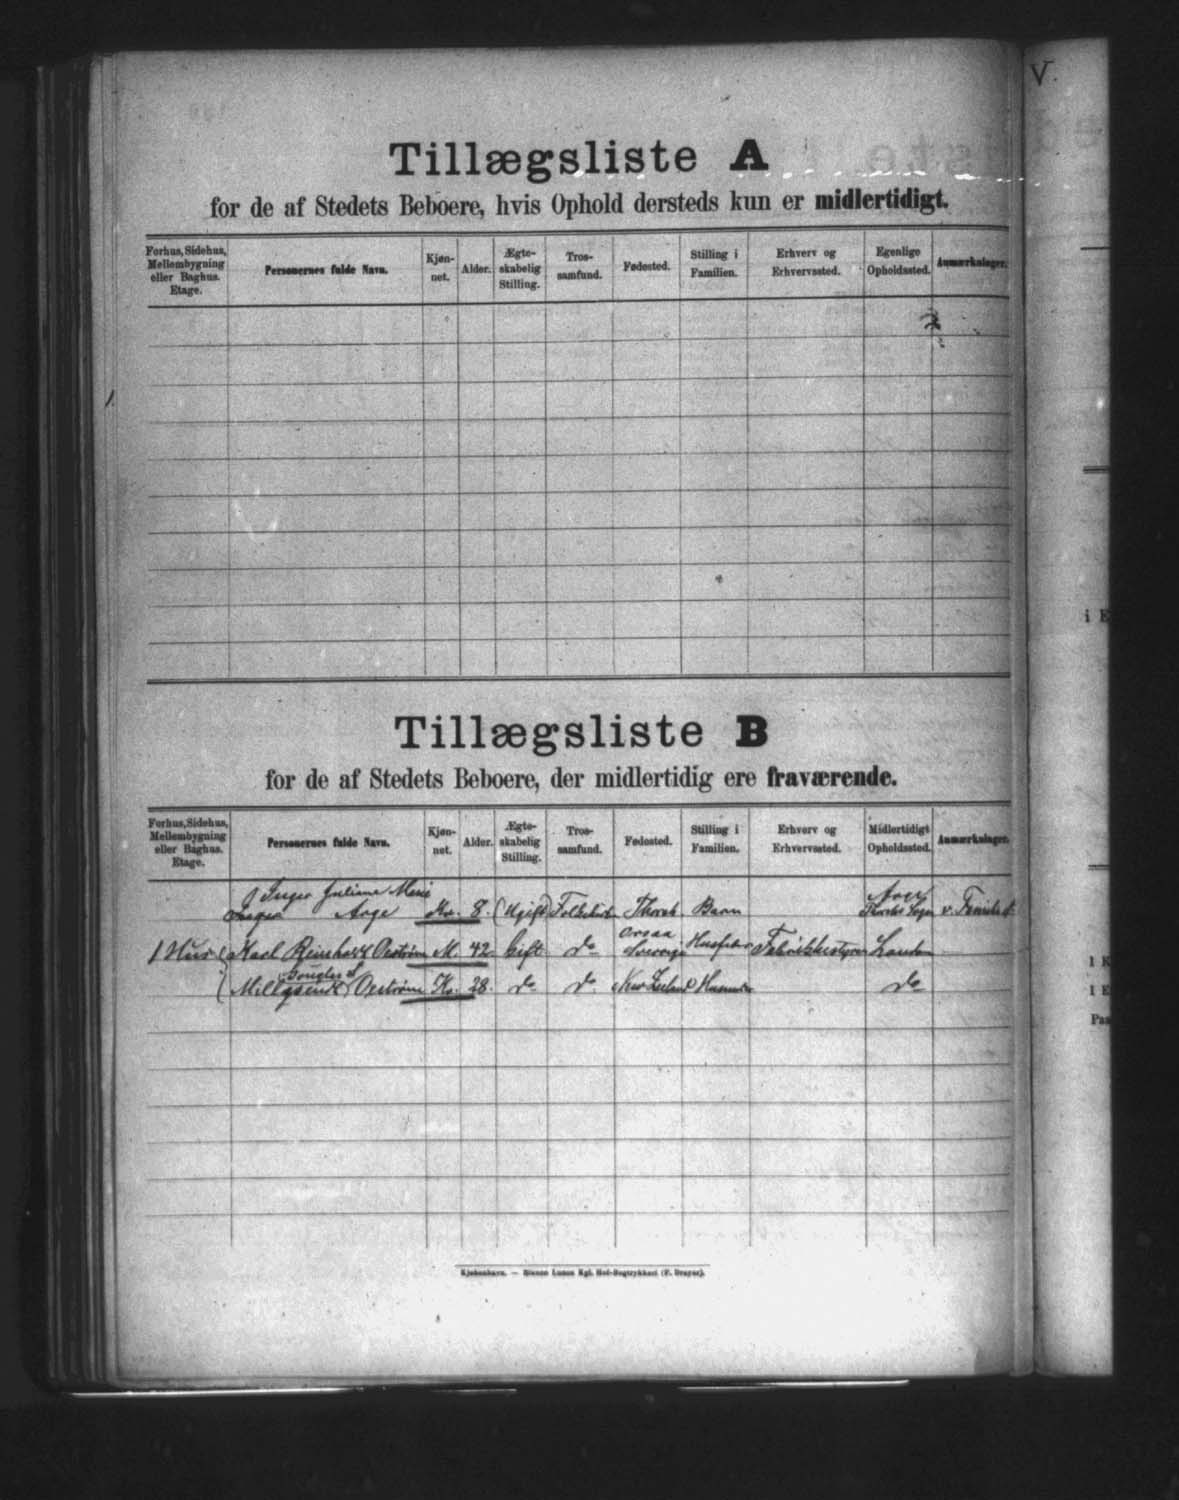 Tillægsliste A
for de af Stedets Beboere, hvis Ophold dersteds kun er midlertidigt.
Forhus, Sidehus, Mellembygning eller Baghus. Etage. Personernes fulde Navn. Kjøn-net. Alder. Ægte-skabelig Stilling. Tros-samfund. Fødested. Stilling i Familien. Erhverv og Erhvervssted. Egenlige Opholdssted. Anmærkninger.
Tillægsliste B
for de af Stedets Beboere, der midlertidig ere fraværende.
Forhus, Sidehus, Mellembygning eller Baghus. Etage. Personernes fulde Navn. Kjøn-net. Alder. Ægte-skabelig Stilling. Tros-samfund. Fødested. Stilling i Familien. Erhverv og Erhvervssted. Midlertidigt Opholdssted. Anmærkninger.
Inger Juliane Marie
Aage Kv. 8. Ugift Folkekirken Barn
1 Hus Karl Reinhardt Oestrøm M. 42 Gift do Sverrig Husfader London
Oestrøm Kv. 28. do do. New Zeeland Husmoder do
Kjøbenhavn. — Bianco Lunos Kgl. Hof-Bogtrykkeri (F. Dreyer).
V.
i E
1 K
1 E
Paa